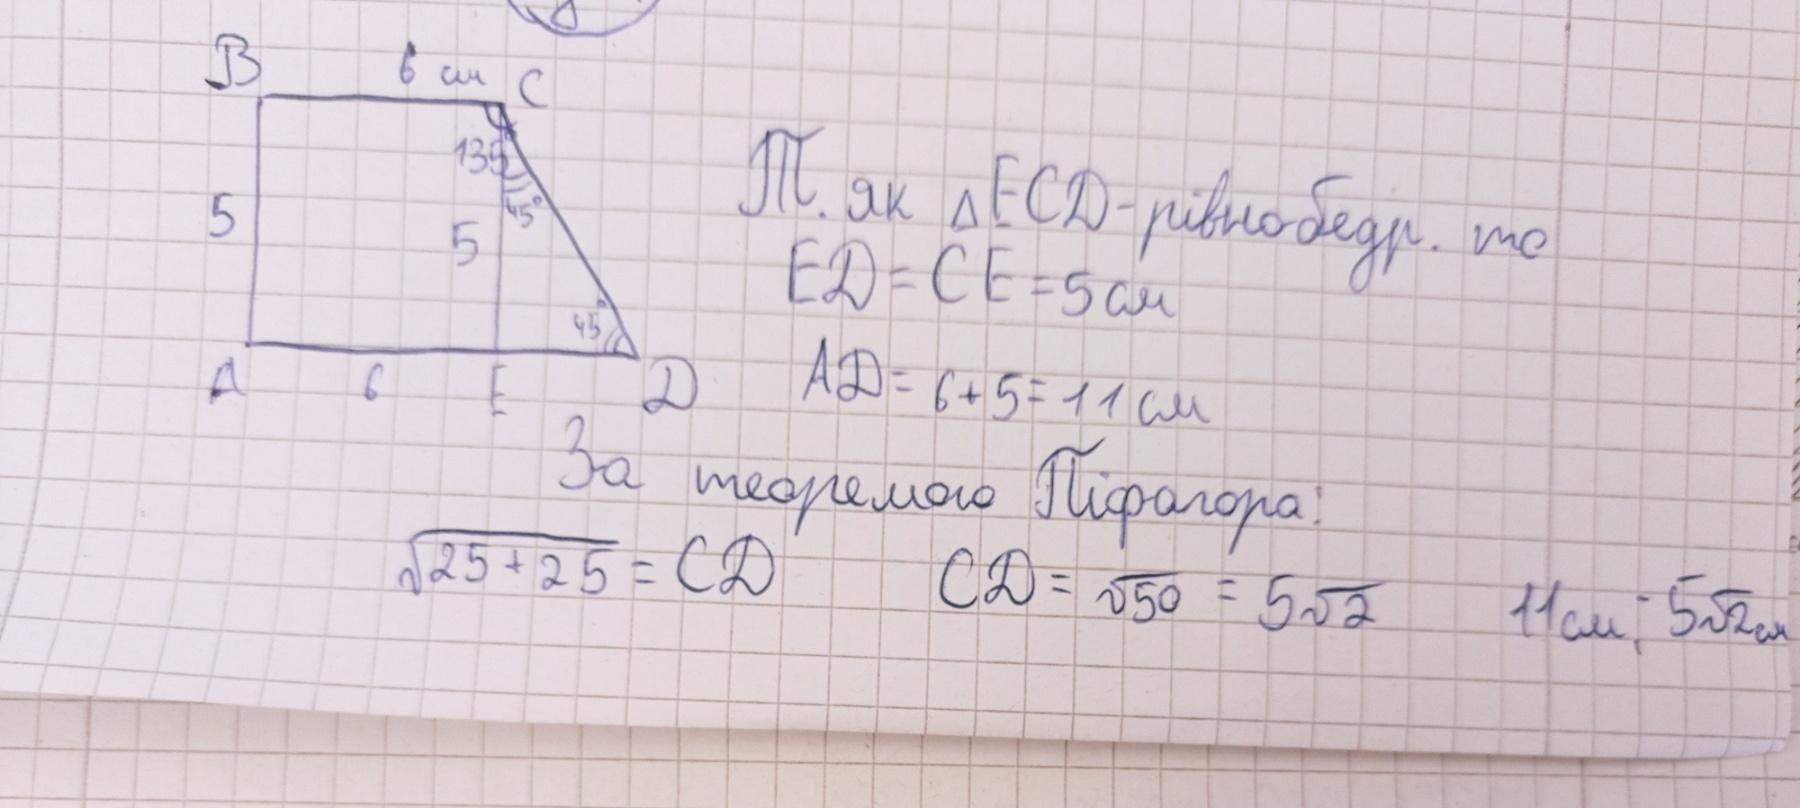 B 6 см C
135
5 5 45°
45°
A 6 E D
Т. як △ECD-рівнобедр. то
ED = CE = 5 см
AD = 6 + 5 = 11 см
За теоремою Піфагора:
√25 + 25 = CD CD = √50 = 5√2 11 см; 5√2 см